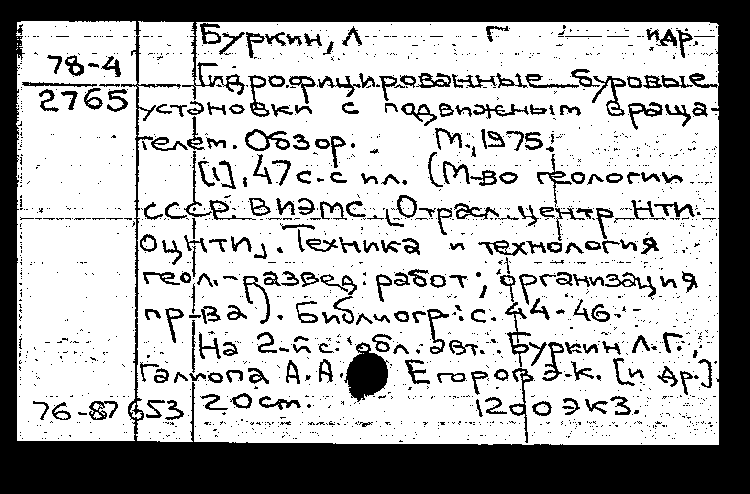 Буркин, Л Г и др.
78-4
Гидрофицированные буровые
2765
установки с подвижным враща-
телем. Обзор. М., 1975.
[1], 47 с. с ил. (М-во геологии
СССР. ВИЭМС. [Отрасл. центр НТИ
ОЦНТИ]. Техника и технология
геол.-развед. работ; организация
пр-ва). Библиогр.: с. 44-46.
На 2-й с. обл. авт.: Буркин Л.Г.,
Галиопа А.А Егоров Э.К. [и др.].
76-87653 20 см. 1200 экз.